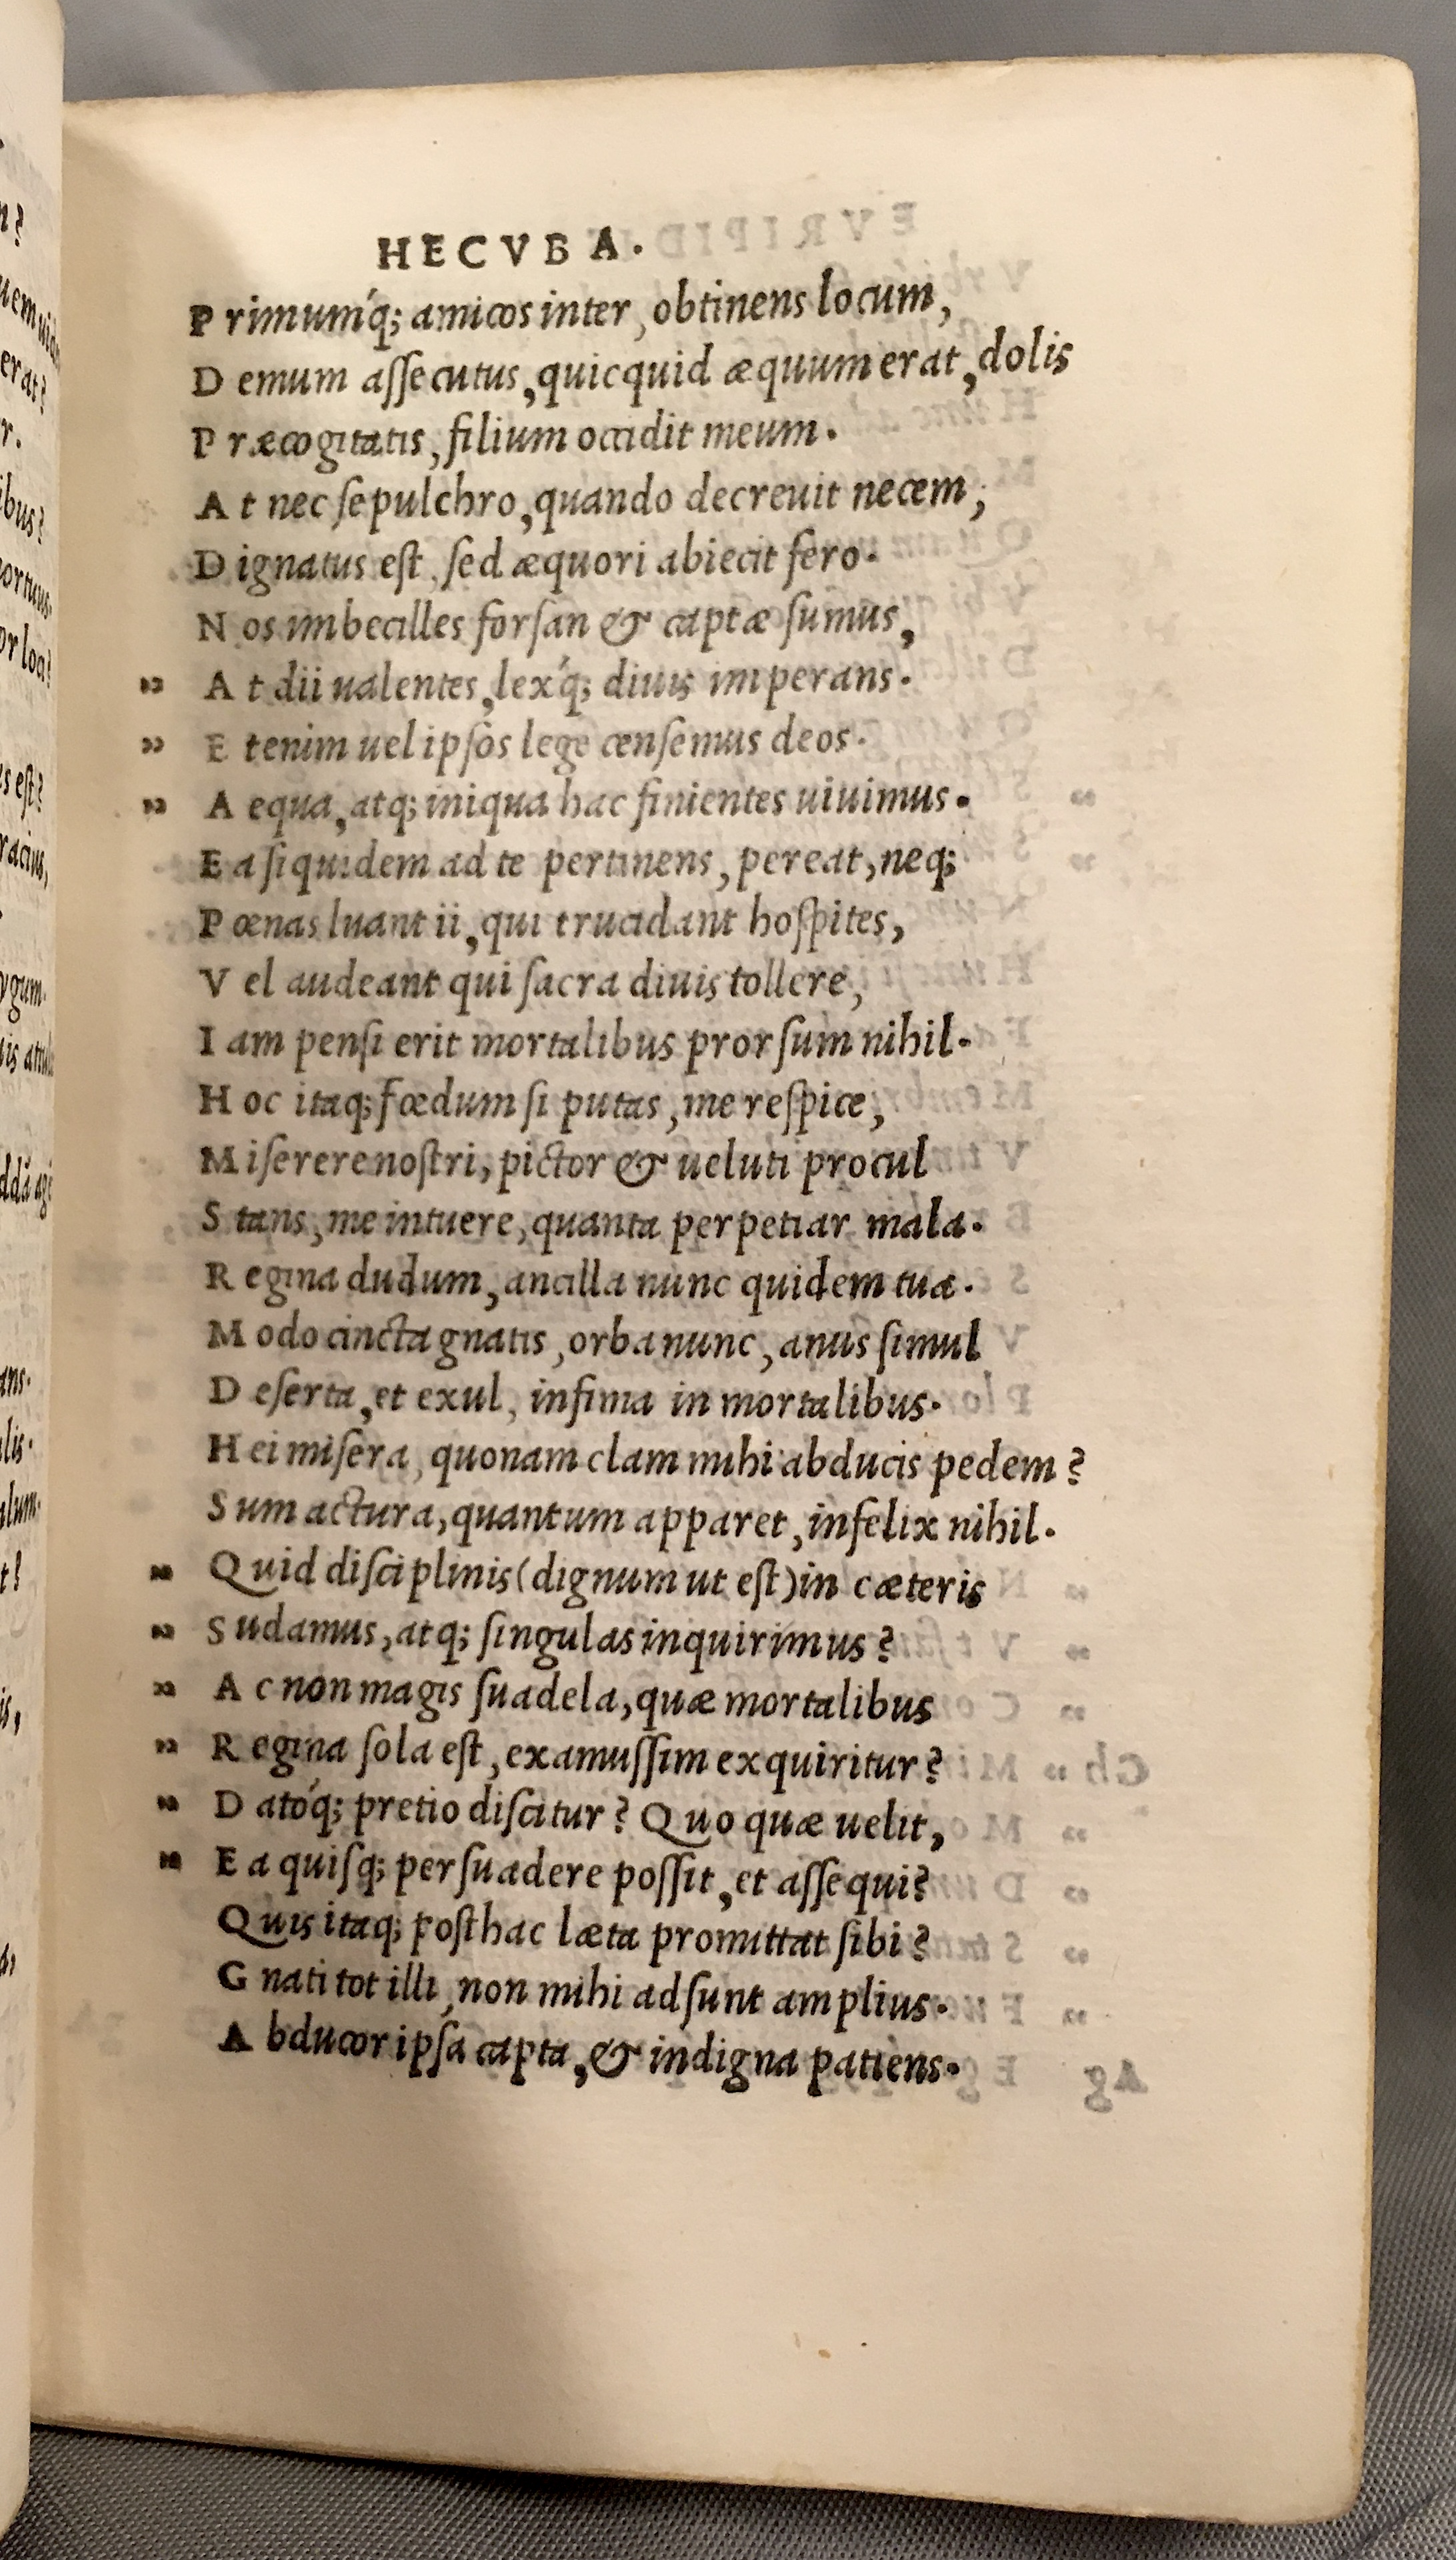 HECVBA.
P rimumq́; amicos inter, obtinens locum,
D emum aſſecutus, quicquid æquum erat, dolis
P ræcogitatis, filium occidit meum.
A t nec ſepulchro, quando decreuit necem,
D ignatus eſt, ſed æquori abiecit fero.
N os imbecilles forſan & captæ ſumus,
" A t dii ualentes, lexq́; diuis imperans.
" E tenim uel ipſos lege cenſemus deos.
" A equa, atq; iniqua hac finientes uiuimus.
E a ſiquidem ad te pertinens, pereat, neq;
P œnas luant ii, qui trucidant hoſpites,
V el audeant qui ſacra diuis tollere,
I am penſi erit mortalibus prorſum nihil.
H oc itaq; fœdum ſi putas, me reſpice,
M iſerere noſtri, pictor & ueluti procul
S tans, me intuere, quanta perpetiar mala.
R egina dudum, ancilla nunc quidem tua.
M odo cincta gnatis, orba nunc, anus ſimul
D eſerta, et exul, infima in mortalibus.
H ei miſera, quonam clam mihi abducis pedem?
S um actura, quantum apparet, infelix nihil.
" Q uid diſciplinis (dignum ut eſt) in cæteris
" S udamus, atq; ſingulas inquirimus?
" A c non magis ſuadela, quæ mortalibus
" R egina ſola eſt, examuſſim exquiritur?
" D atoq́; pretio diſcitur? Quo quæ uelit,
" E a quiſq; perſuadere poſſit, et aſſequi?
Q uis itaq; poſthac læta promittat ſibi?
G nati tot illi, non mihi adſunt amplius.
A bducor ipſa capta, & indigna patiens.